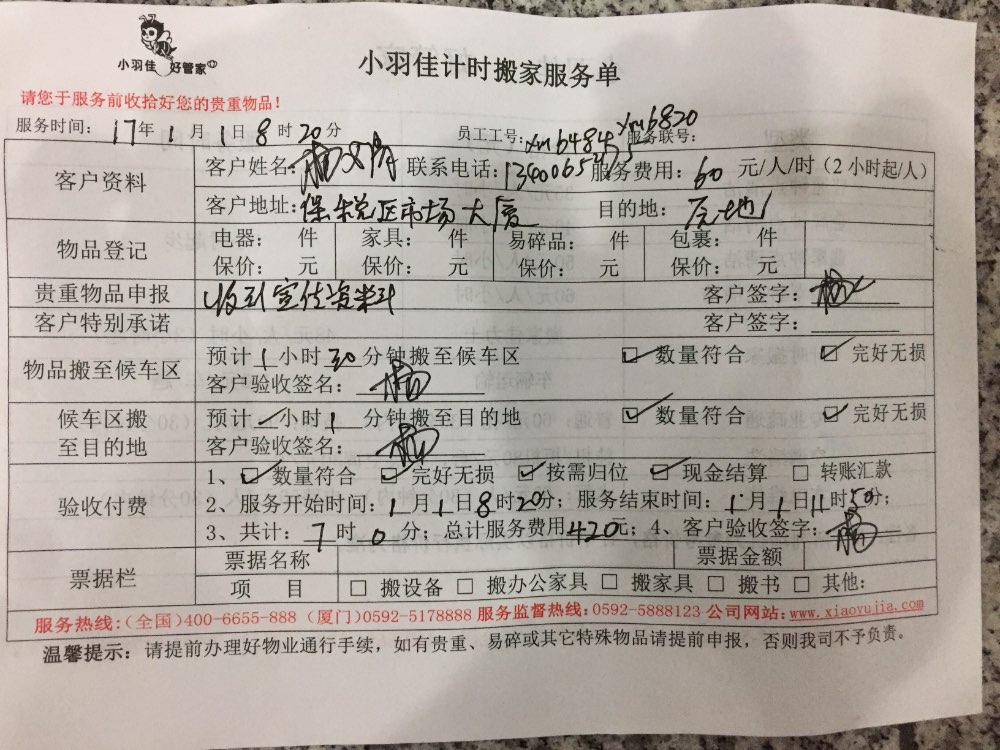 小羽佳 好管家
小羽佳计时搬家服务单
请您于服务前收拾好您的贵重物品!
服务时间: 17年1月1日8时20分 员工工号: xm6484 xm6820 服务联号:
客户资料 客户姓名: 联系电话: 服务费用: 60 元/人/时 (2小时起/人)
客户地址: 保税区市场大厦 目的地: 原地
物品登记 电器: 件 家具: 件 易碎品: 件 包裹: 件
保价: 元 保价: 元 保价: 元 保价: 元
贵重物品申报 客户签字:
客户特别承诺 客户签字:
物品搬至候车区 预计1小时30分钟搬至候车区 数量符合 完好无损
客户验收签名:
候车区搬至目的地 预计 小时1分钟搬至目的地 数量符合 完好无损
客户验收签名:
验收付费 1、数量符合 完好无损 按需归位 现金结算 转账汇款
2、服务开始时间: 1月1日8时20分; 服务结束时间: 1月1日11时50分;
3、共计: 7时0分; 总计服务费用420元; 4、客户验收签字:
票据栏 票据名称 票据金额
项 目 搬设备 搬办公家具 搬家具 搬书 其他:
服务热线:(全国)400-6655-888 (厦门)0592-5178888 服务监督热线:0592-5888123 公司网站:www.xiaoyujia.com
温馨提示: 请提前办理好物业通行手续, 如有贵重、易碎或其它特殊物品请提前申报, 否则我司不予负责。